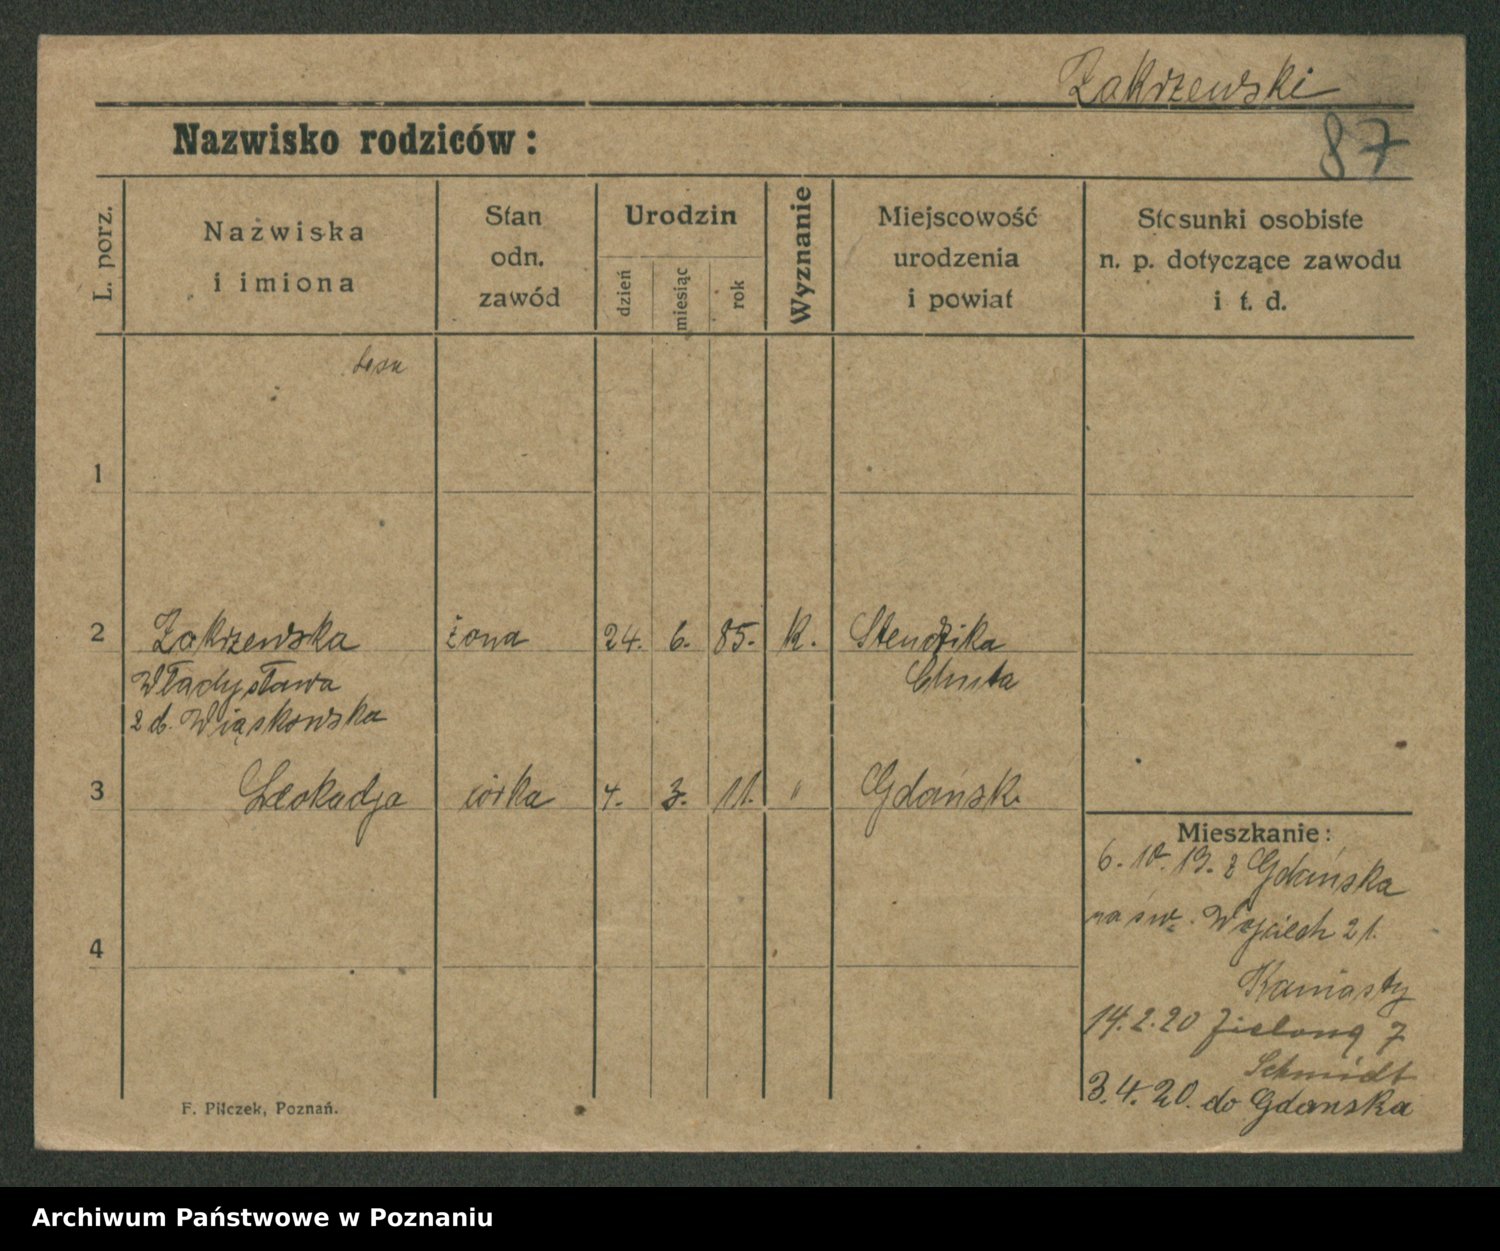 Zakrzewski
87
Nazwisko rodziców:
L. porz.
Nazwiska
i imiona
Stan
odn.
zawód
Urodzin
dzień
miesiąc
rok
Wyznanie
Miejscowość
urodzenia
i powiat
Stosunki osobiste
n. p. dotyczące zawodu
i t. d.
1
2 Zakrzewska żona 24. 6. 85. k.
Władysława
2 d. Wiąskowska
3 Leokadja córka 4. 3. 11. " Gdańsk
4
Mieszkanie:
6. 10. 19. z Gdańska
na św. Wojciech 21.
14.2.20 Zieloną 7
Schmidt
3.4.20. do Gdanska
F. Pilczek, Poznań.
Archiwum Państwowe w Poznaniu